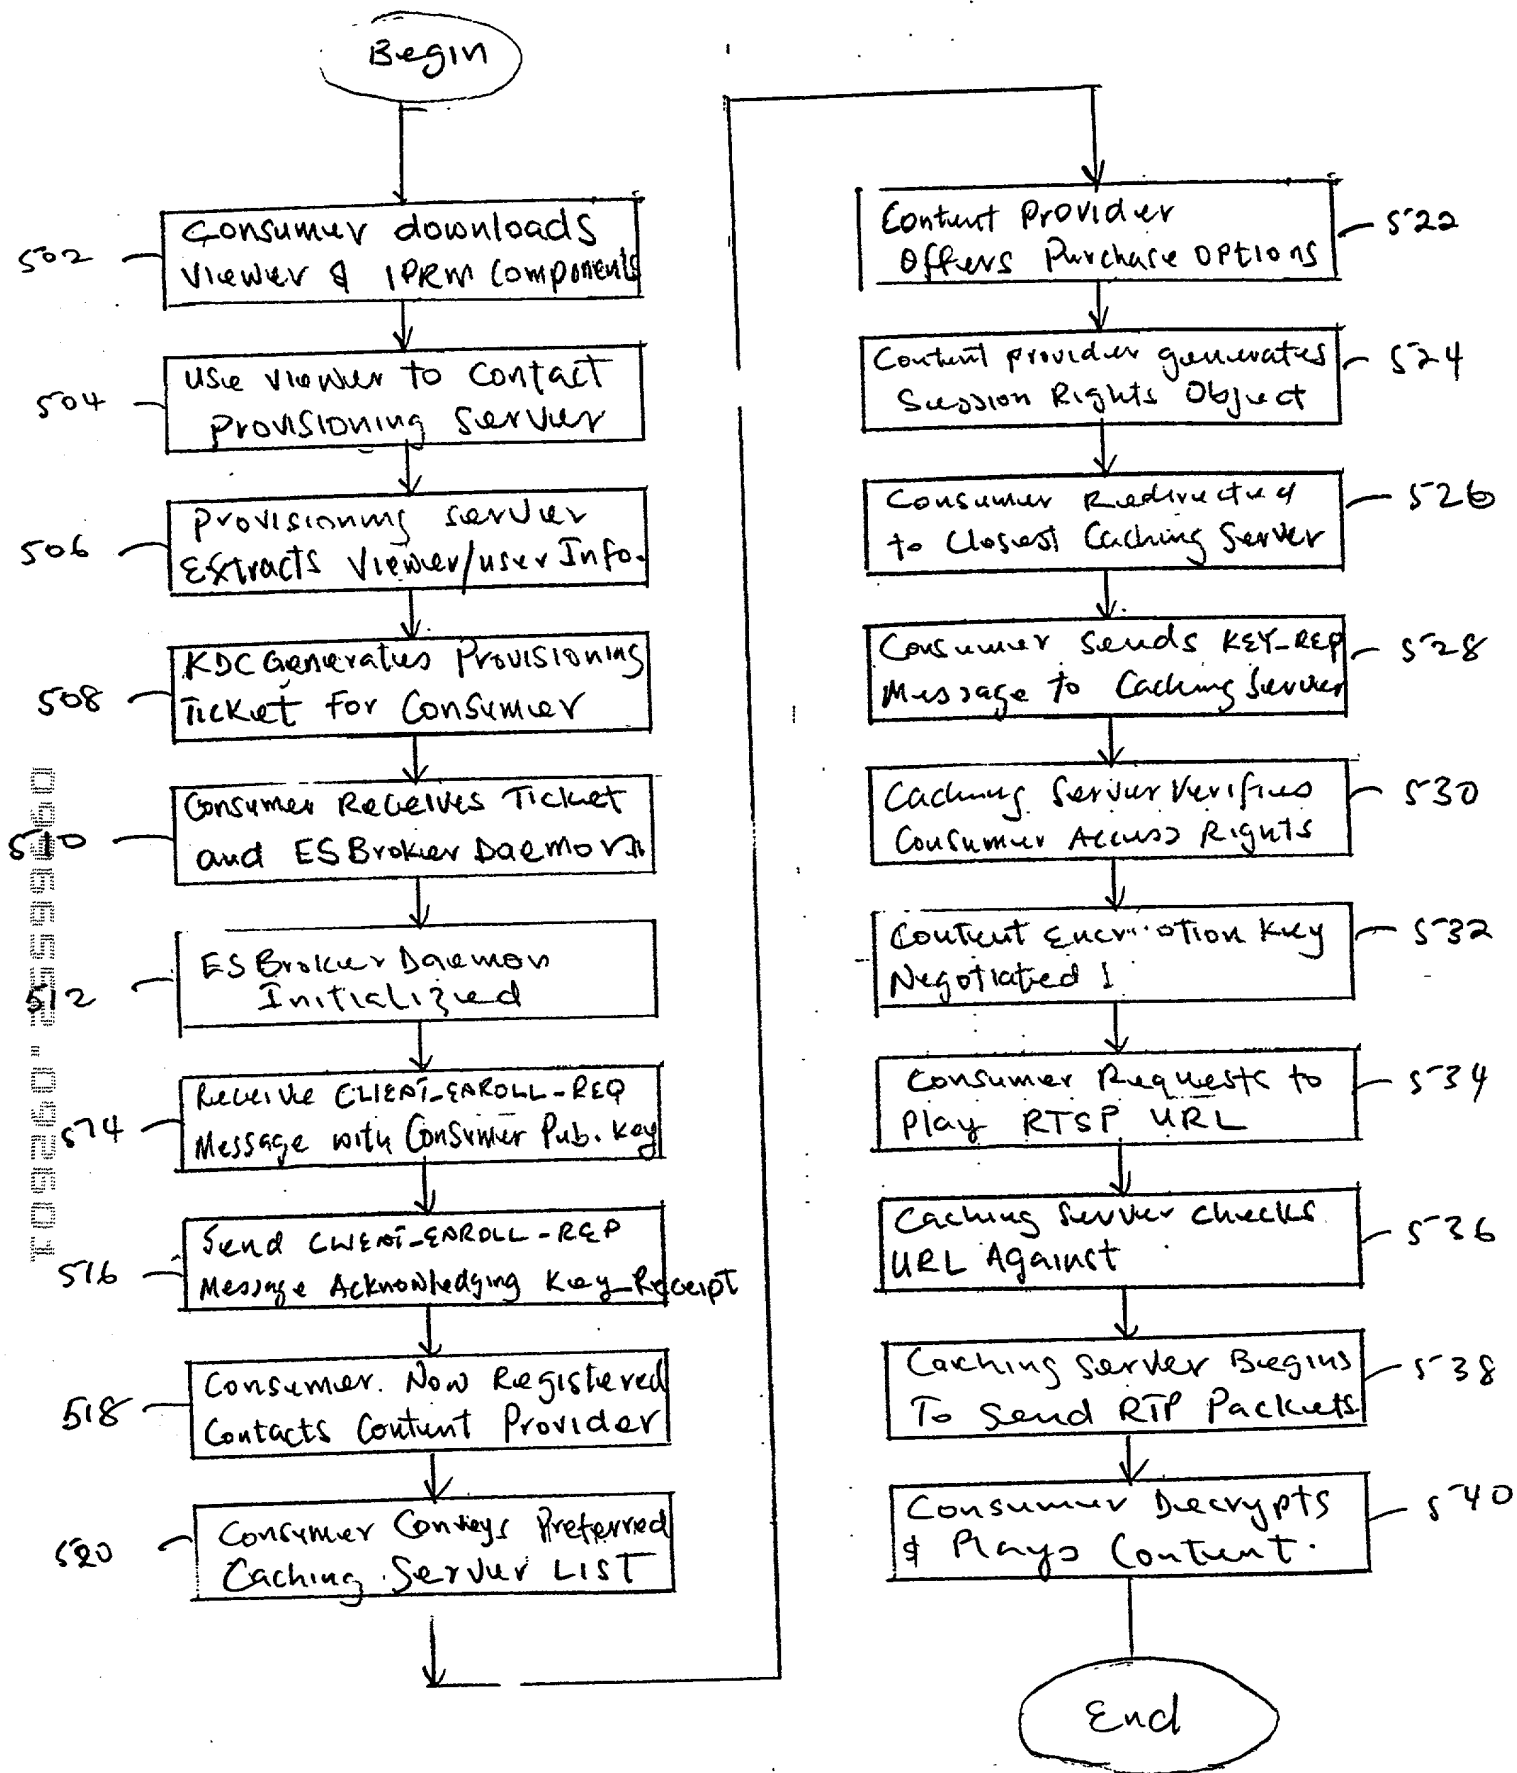 Begin
502
Consumer downloads
Viewer & IPRM Components
504
Use Viewer to Contact
Provisioning Server
506
Provisioning Server
Extracts Viewer/user Info.
508
KDC Generates Provisioning
Ticket For Consumer
510
Consumer Receives Ticket
and ESBroker Daemon
512
ESBroker Daemon
Initialized
514
Receive CLIENT_ENROLL-REQ
Message with Consumer Pub. Key
516
Send CLIENT_ENROLL-REP
Message Acknowledging Key Receipt
518
Consumer Now Registered
Contacts Content Provider
520
Consumer Conveys Preferred
Caching Server LIST
Content Provider
Offers Purchase Options
522
Content provider generates
Session Rights Object
524
Consumer Redirected
to Closest Caching Server
526
Consumer Sends KEY_REP
Message to Caching Server
528
Caching Server Verifies
Consumer Access Rights
530
Content Encryption Key
Negotiated
532
Consumer Requests to
Play RTSP URL
534
Caching Server Checks
URL Against
536
Caching Server Begins
To Send RTP Packets
538
Consumer Decrypts
& Plays Content.
540
End